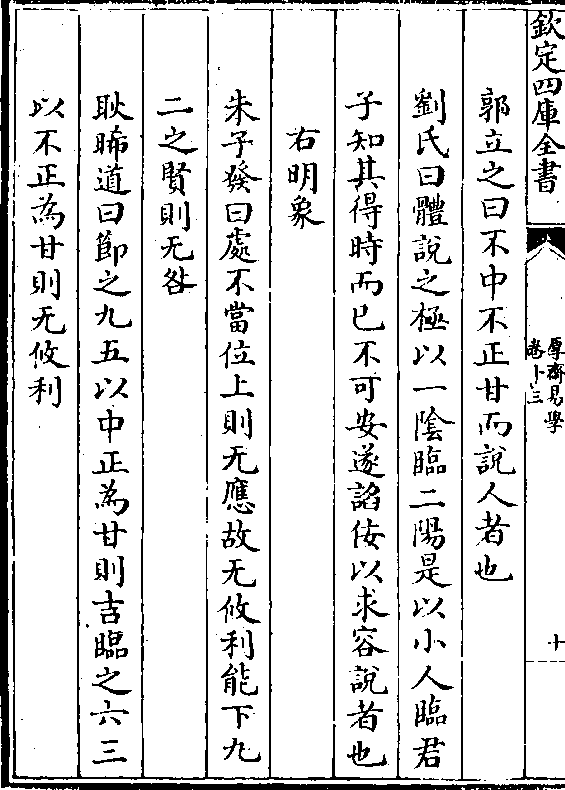 欽定四庫全書
厚齋易學
卷十三
十
郭立之曰不中不正甘而說人者也
劉氏曰體說之極以一陰臨二陽是以小人臨君
子知其得時而已不可安遂諂佞以求容說者也
右明象
朱子發曰處不當位上則无應故无攸利能下九
二之賢則无咎
耿晞道曰節之九五以中正為甘則吉臨之六三
以不正為甘則无攸利